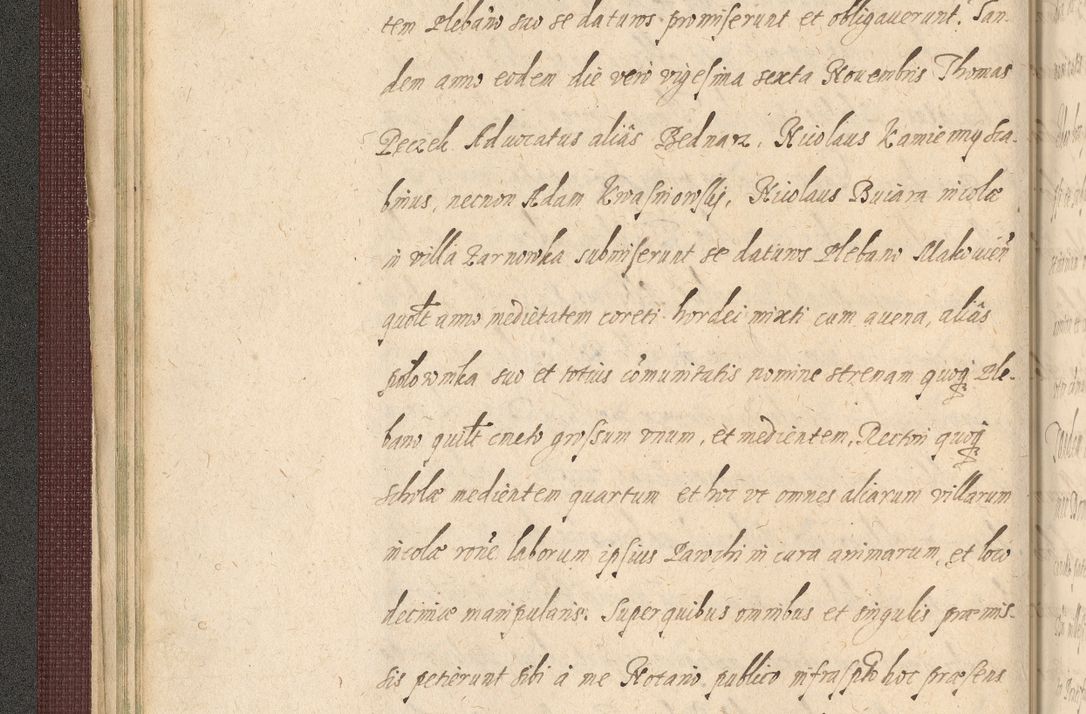 tem Plebano suo se daturos promiserunt et obligaverunt. Tan-
dem anno eodem die vero vigesima sexta Novembris Thomas
Peczek Advocatus aliâs Bednarz, Nicolaus Kamienny Sca-
binus, necnon Adam Kwasniowskij, Nicolaus Buiara incolæ
in villa Zarnowka submiserunt se daturos Plebano Makovien̄
quolt anno medietatem coreti hordei mixti cum avena, aliâs
połowinka suo et totius cōmunitatis nomine strenam quoq Ple-
bano quilt cmeto grossum vnum, et medientem, Rectori quoq
scholæ medientem quartum et hoc vt omnes aliarum villarum
incolæ rōne laborum ipsius Parochi in cura animarum, et loco
decimæ manipularis. Super quibus omnibus et singulis præmis-
sis petierunt sibi à me Notario publico infraspto hoc præsens